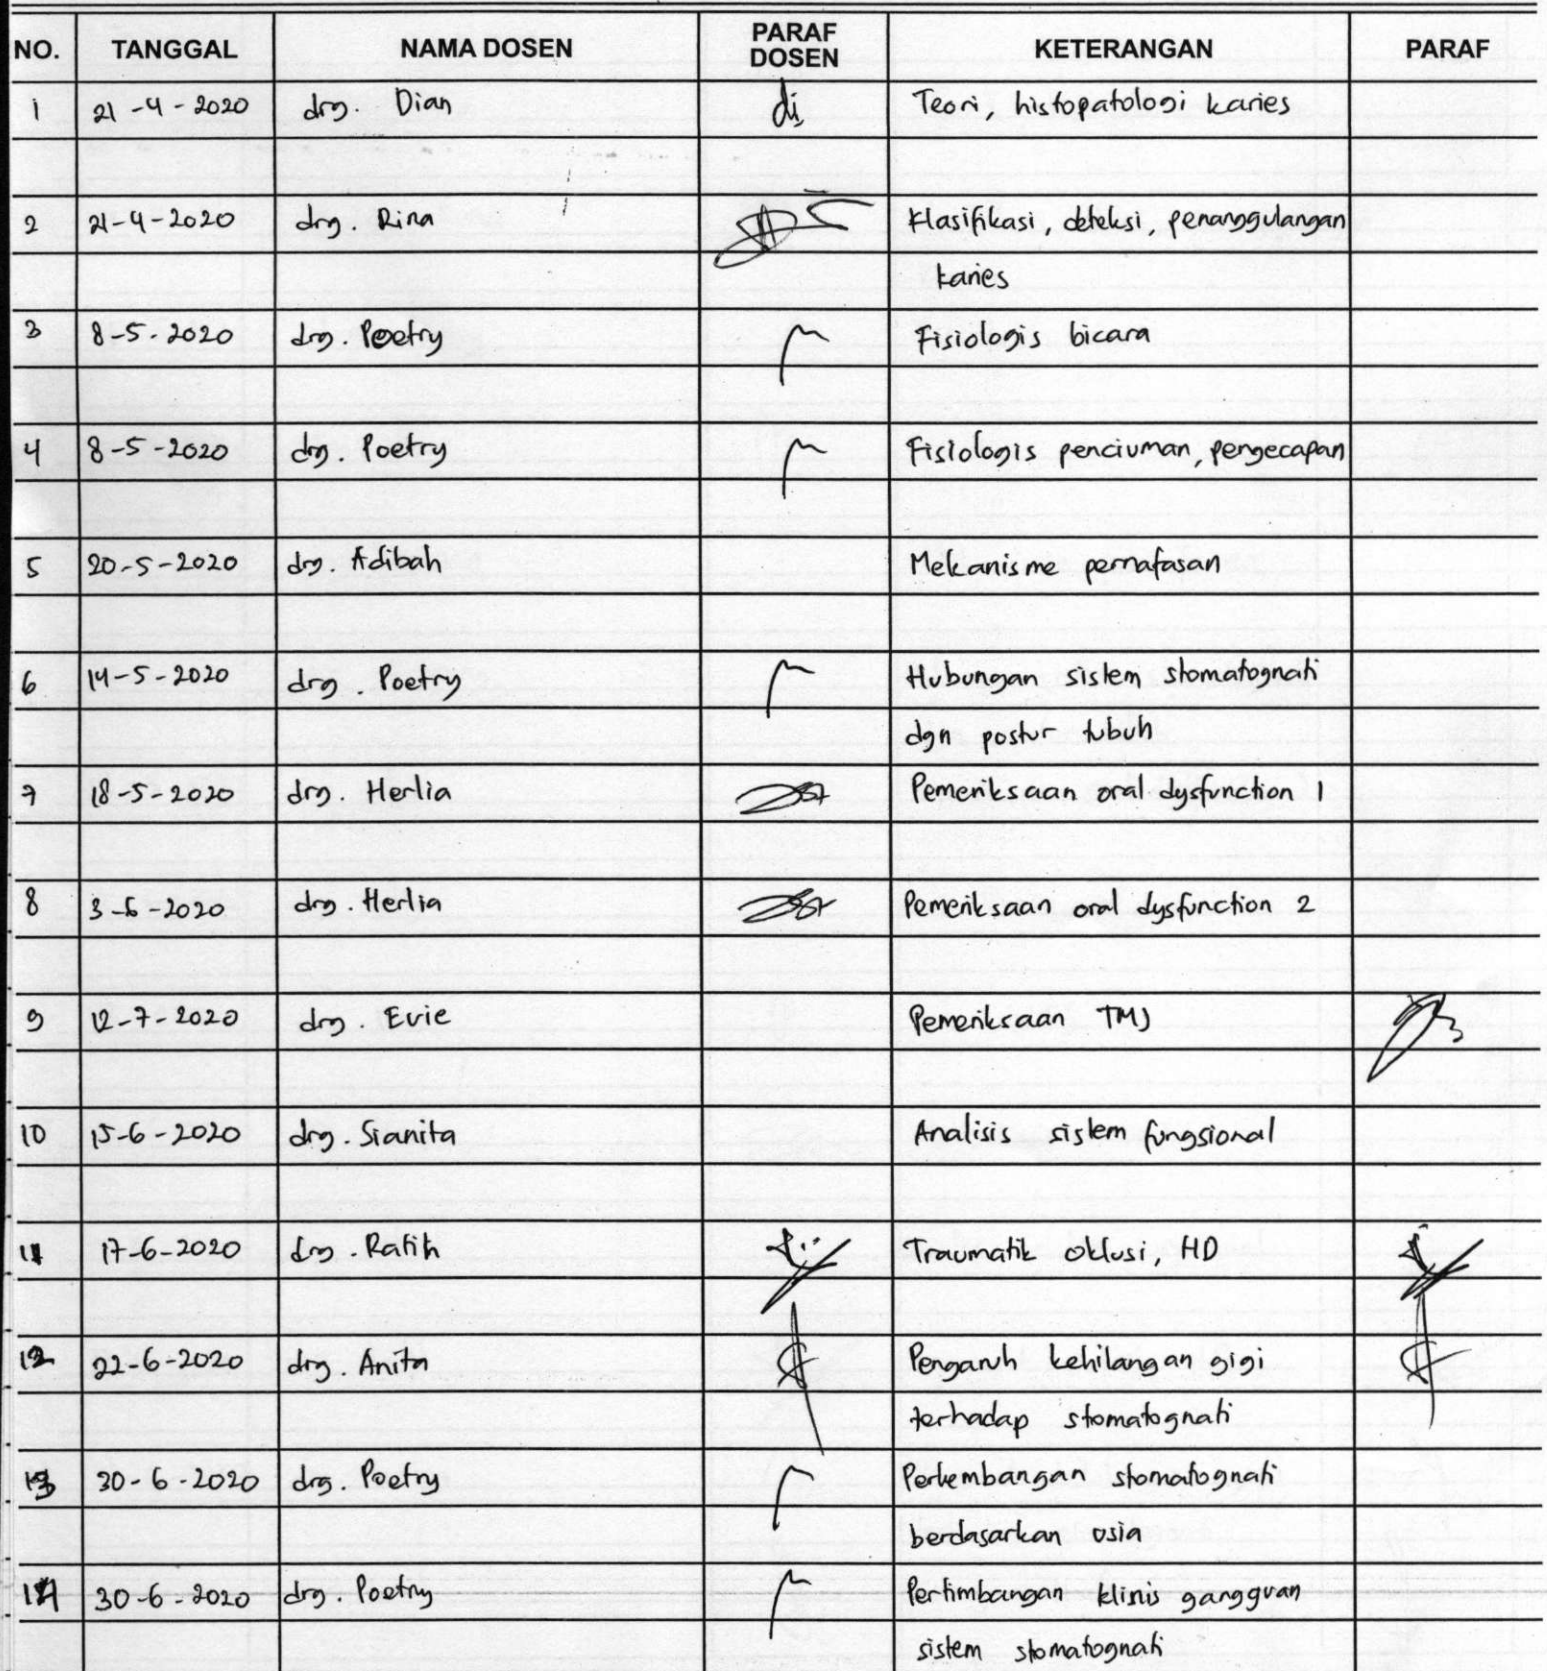 NO. TANGGAL NAMA DOSEN PARAF DOSEN KETERANGAN PARAF
1 21-4-2020 drg. Dian di Teori, histopatologi karies
2 21-4-2020 drg. Rina Klasifikasi, deteksi, penanggulangan
karies
3 8-5-2020 drg. Poetry Fisiologis bicara
4 8-5-2020 drg. Poetry Fisiologis penciuman, pengecapan
5 20-5-2020 drg. Adibah Mekanisme pernafasan
6 14-5-2020 drg. Poetry Hubungan sistem stomatognati
dgn postur tubuh
7 18-5-2020 drg. Herlia Pemeriksaan oral dysfunction 1
8 3-6-2020 drg. Herlia Pemeriksaan oral dysfunction 2
9 12-7-2020 drg. Evie Pemeriksaan TMJ
10 15-6-2020 drg. Sianita Analisis sistem fungsional
11 17-6-2020 drg. Ratih Traumatik oklusi, HD
12 22-6-2020 drg. Anita Pengaruh kehilangan gigi
terhadap stomatognati
13 30-6-2020 drg. Poetry Perkembangan stomatognati
berdasarkan usia
14 30-6-2020 drg. Poetry Pertimbangan klinis gangguan
sistem stomatognati